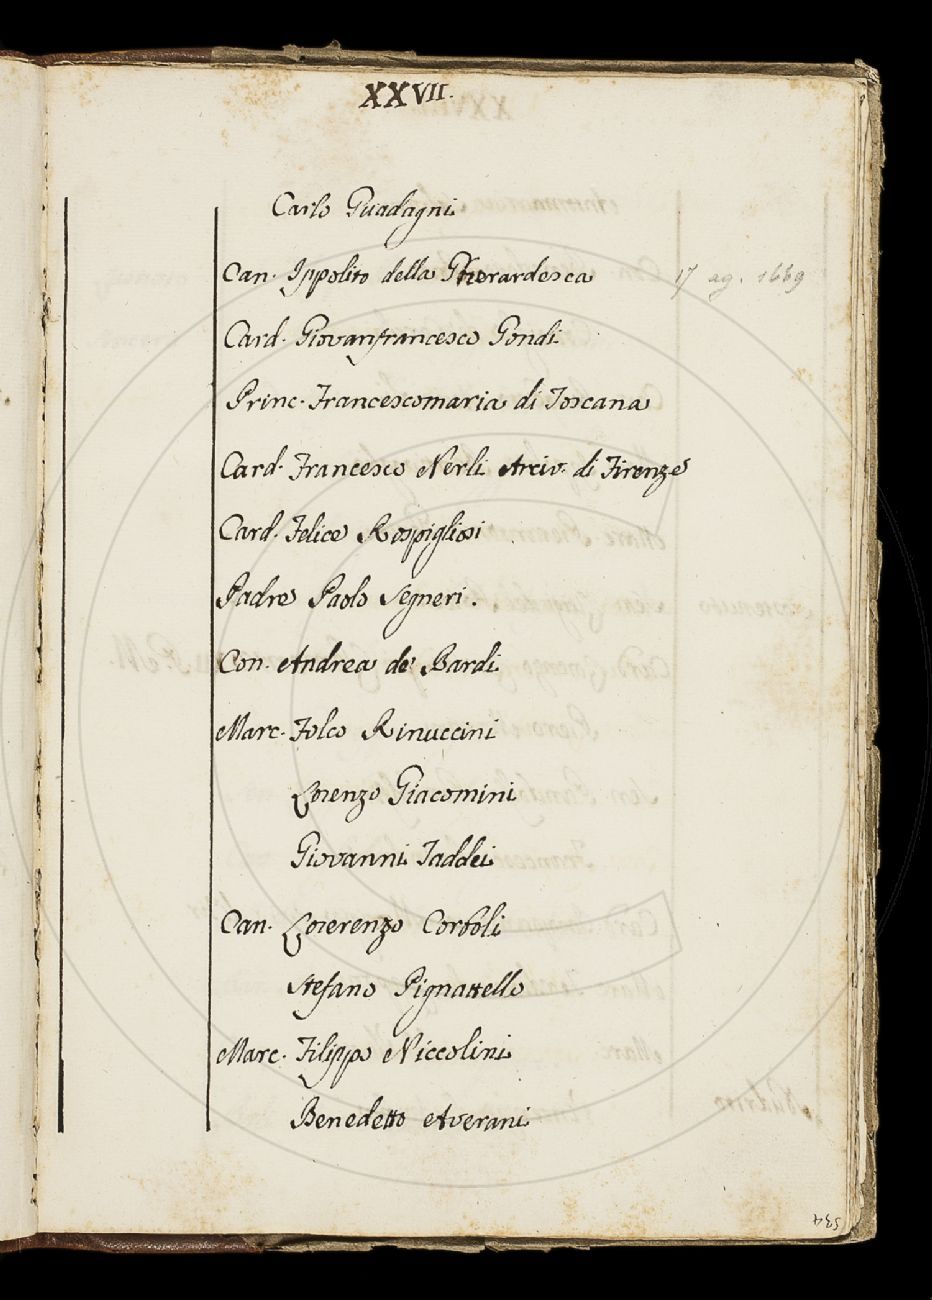 XXVII.
Carlo Guadagni
Can. Ippolito della Gherardesca 17 ag. 1669
Card. Giovanfrancesco Gondi
Princ. Francescomaria di Toscana
Card. Francesco Nerli Arciv. di Firenze
Card. Felice Rospigliosi
Padre Paolo Segneri.
Con. Andrea de' Bardi
Marc. Folco Rinuccini
Lorenzo Giacomini
Giovanni Taddei
Can. Lorerenzo Corboli
Stefano Pignattello
Marc. Filippo Niccolini
Benedetto Averani